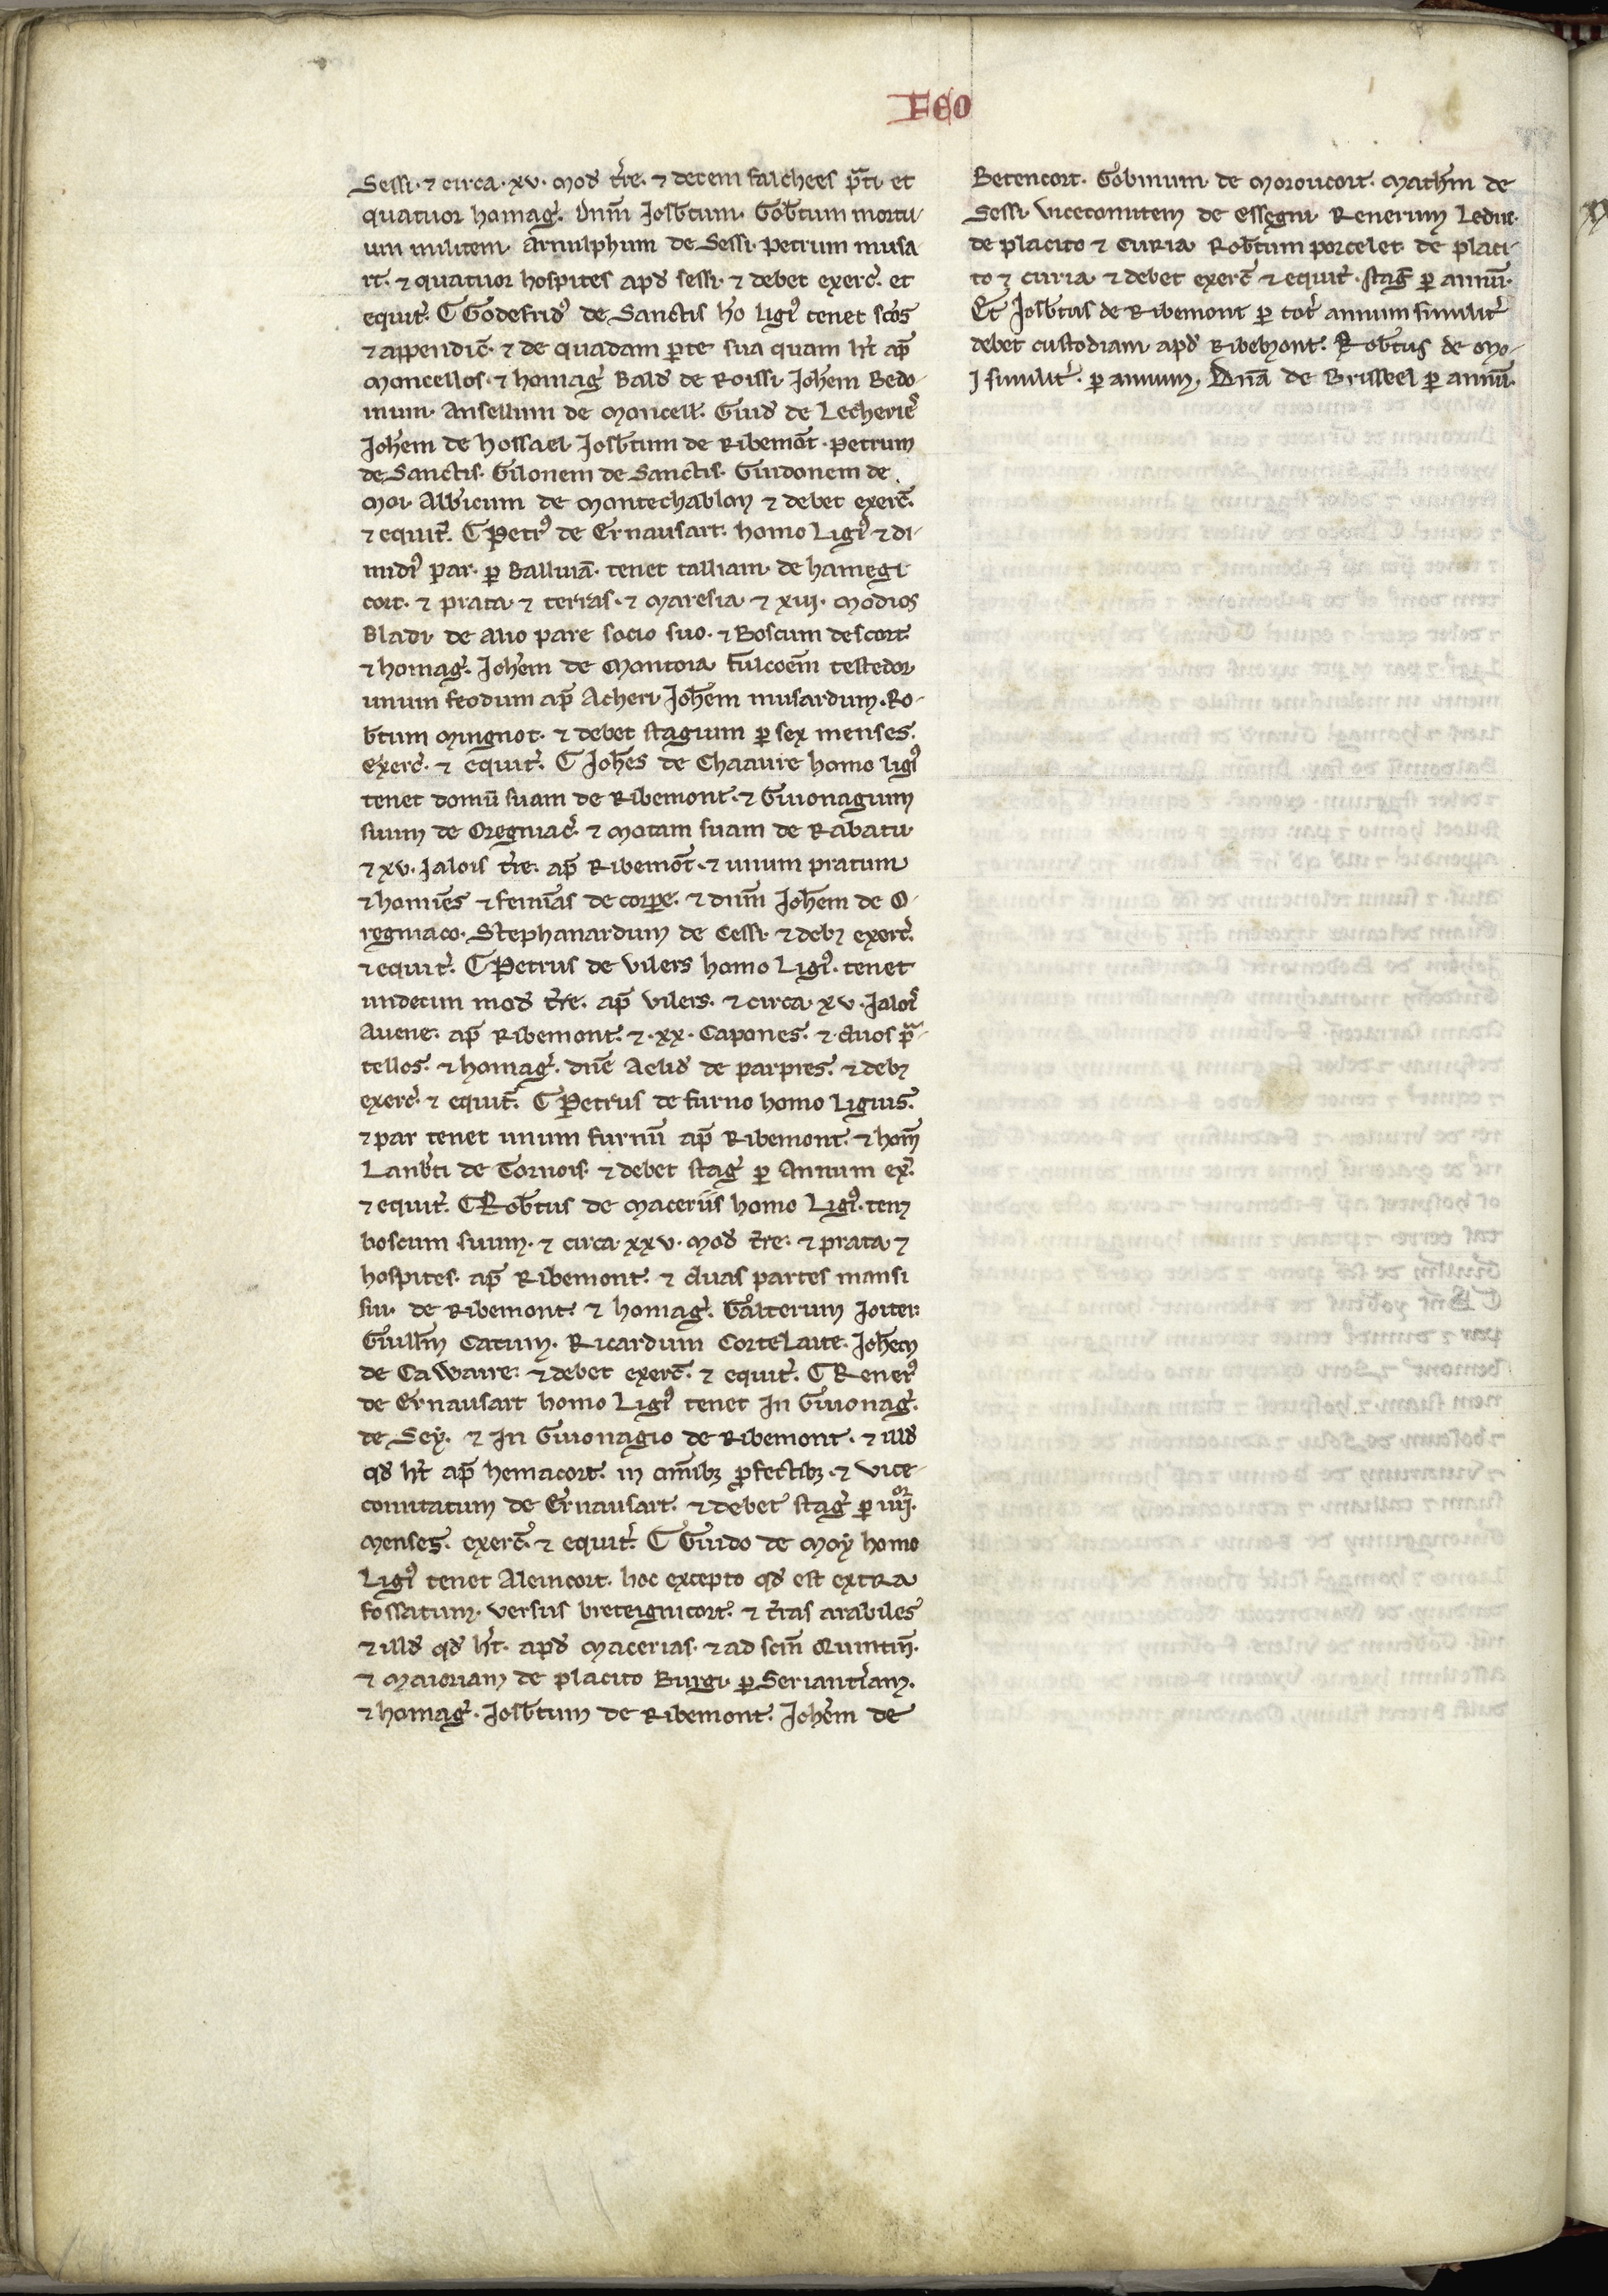 FEO
Sessi. ⁊ circa .xv. mod̄ t̄re. ⁊ decem falchees p̄ti et
quatuor homag̛. Dn̄m Josb̄tum. Gob̄tum mortu-
um militem. Arnulphum de Sessi. Petrum musa
rt. ⁊ quatuor hospites apd̄ sessi. ⁊ debet exerc̛. et
equit̛. ⸿ Godefrid̛ de Sanctis hō ligꝰ tenet sc̄os
⁊ appendic̄. ⁊ de quadam ꝑte sua quam h̄t ap̄
Moncellos. ⁊ homag̛ Bald̄ de Roissi. Joh̄em Bedo-
inum. Ansellum de Moncell̄. Guid̄ de Lecherie̛
Joh̄em de Hossael. Josb̄tum de Ribemōt. Petrum
de Sanctis. Gilonem de Sanctis. Guidonem de
Moi. Albicum de Montechablon ⁊ debet exerc̄.
⁊ equit̛. ⸿ Petrꝰ de Ernausart. homo Ligꝰ ⁊ di-
midiꝰ par. ꝑ Balliuiā. tenet talliam de hamegi
cort. ⁊ prata ⁊ terras. ⁊ Maresia ⁊ xiij. Modios
Bladi de alio pare socio suo. ⁊ Boscum descort
⁊ homag̛. Joh̄em de Montoia. fulcoēm testedor
unum feodum ap̄ Acheri. Joh̄em musardum. Ro-
b̄tum Mingnot. ⁊ debet stagium ꝑ sex menses.
exerc̛. ⁊ equit̛. ⸿ Joh̄es de Chaaure homo ligꝰ
tenet domū suam de Ribemont. ⁊ Guionagium
suum de Oregniac̛. ⁊ Motam suam de Rabatu
⁊ xv. Jalois t̄re. ap̄ Ribemōt. ⁊ unum pratum
⁊ homīes ⁊ femīas de corꝑe. ⁊ dn̄m Joh̄em de O-
regniaco. Stephanardum de Cessi. ⁊ debꝫ exerc̛.
⁊ equit̛. ⸿ Petrus de Vilers homo Ligꝰ. tenet
undecim mod̄ t̄re. ap̄ Vilers. ⁊ circa xv. Jaloi̛
Auene. ap̄ Ribemont. ⁊ .xx. Capones. ⁊ duos p̄-
tellos. ⁊ homag̛. dn̄e Aelid̄ de parpres. ⁊ debꝫ
exerc̛. ⁊ equit̄. ⸿ Petrus de furno homo Ligius.
⁊ par tenet unum furnū ap̄ Ribemont. ⁊ hom̄
Lanb̄ti de Tornois. ⁊ debet stag̛ ꝑ Annum ex̛.
⁊ equit̛. ⸿ Rob̄tus de Maceriis homo Ligꝰ. tenꝫ
boscum suum. ⁊ circa xxv. Mod̄ t̄re. ⁊ prata ⁊
hospites. ap̄ Ribemont. ⁊ duas partes mansi
sui. de Ribemont. ⁊ homag̛. Galterum Joiter.
Guill̄m Catum. Ricardum Cortelaue. Joh̄em
de CaWaire. ⁊ debet exerc̄. ⁊ equit̛. ⸿ Renerꝰ
de Ernausart homo Ligꝰ tenet In Guionag̛.
de Sey. ⁊ In Guionagio de Ribemont. ⁊ illd̄
qd̄ h̄t ap̄ hemacort. in om̄ibꝫ ꝓfectibꝫ. ⁊ vice-
comitatum de Ernausart. ⁊ debet stag̛ ꝑ iiijor.
Menses. exerc̄. ⁊ equit̛. ⸿ Guido de Moy homo
Ligꝰ tenet Aleincort. hoc excepto qd̄ est extra
fossatum. versus breteignicort. ⁊ t̄ras arabiles
⁊ illd̄ qd̄ h̄t. apd̄ Macerias. ⁊ ad sc̄m Quintin̄.
⁊ Maioriam de placito Burgi. ꝑ Seriant̛iam.
⁊ homag̛. Josb̄tum de Ribemont. Joh̄em de
Betencort. Gobinum de Moroucort. Math̄m de
Sessi. vicecomitem de essegni. Renerum Leduc.
de placito ⁊ Curia. Rob̄tum porcelet de placi-
to ⁊ curia. ⁊ debet exerc̄ ⁊ equit̛. staḡ ꝑ annū.
Et Josb̄tus de Ribemont ꝑ tot̛ annum similit̛
debet custodiam apd̄ Ribemont. Rob̄tus de Mo-
j similit̛. ꝑ annum. Dn̄a de Brissoel ꝑ annū.